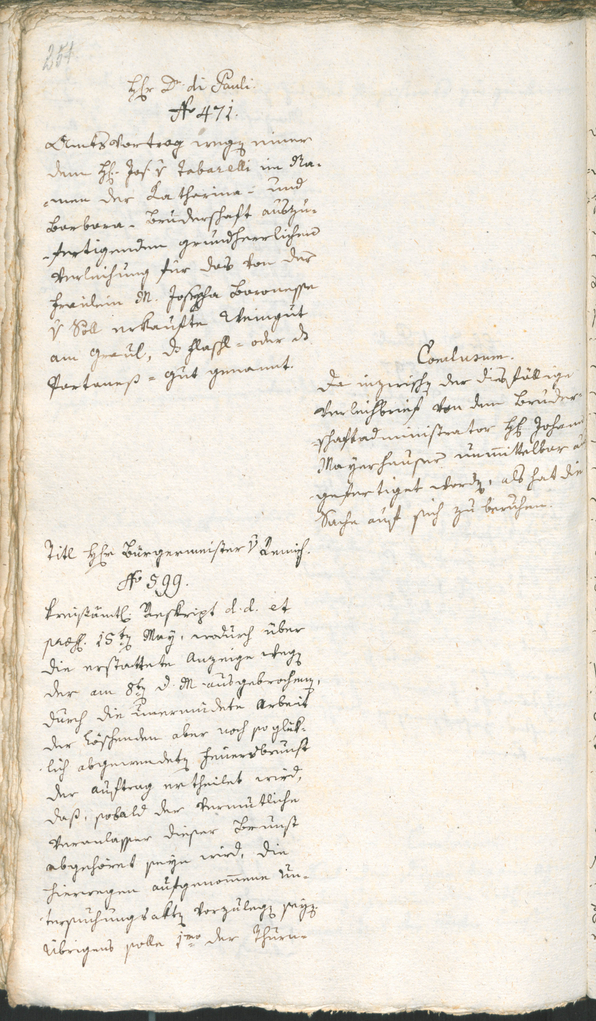 254.
Hr. Dr. di Pauli.
No 471.
Amtsvortrag wegen einer
dem H. Jos. v Tabarelli im Na-
men der Katharina- und
Barbara-Bruderschaft auszu-
fertigenden grundherrlichen
Verleihung für das von der
Fräulein M. Josepha Baronesse
v Söll erkaufte Weingut
am Graul, das Flassl- oder das
Partaneß-Gut genannt.
Conclusum.
Da inzwischen der diesfällige
Verleihbrief von dem Bruder-
schaftadministrator H. Johann
Mayrhauser unmittelbar aus
gefertiget worden, als hat die
Sache auf sich zu beruhen.
Titl Hr Bürgermeister v
No 599.
Kreisämtl. Reskript d.d. et
praes. 15ten May, wodurch über
die erstattete Anzeige wegen
der am 8ten d. M ausgebrochenen,
durch die unermüdete Arbeit
der Löschenden aber noch so glük-
lich abgewendeten Feuersbrunst
der Auftrag ertheilet wird,
daß, sobald der vermutliche
Veranlasser dieser Brunst
abgehöret seyn wird, die
hierwegen aufgenommene Un-
tersuchungsakten vorzulegen seyen
Übrigens solle 1mo der Thurn-